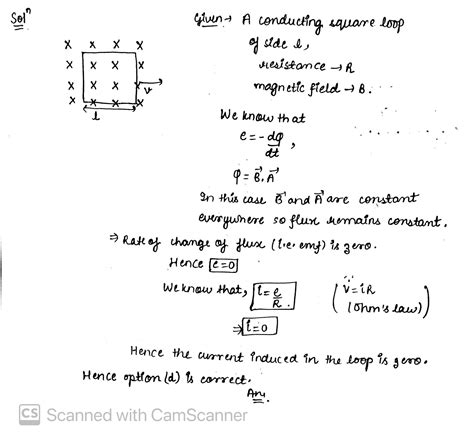 Solⁿ
Given → A conducting square loop
of side l,
resistance → R
magnetic field → B.
x x x x
x x x x
x x x x
x x x x
v
l
We know that
e = -dφ/dt,
φ = B⃗.A⃗
In this case B⃗ and A⃗ are constant
everywhere so flux remains constant.
⇒ Rate of change of flux (i.e. emf) is zero.
Hence e=0
We know that, i = e/R. (∵ v=iR
(Ohm's law))
⇒ i=0
Hence the current induced in the loop is zero.
Hence option (d) is correct.
Ans.
CS Scanned with CamScanner